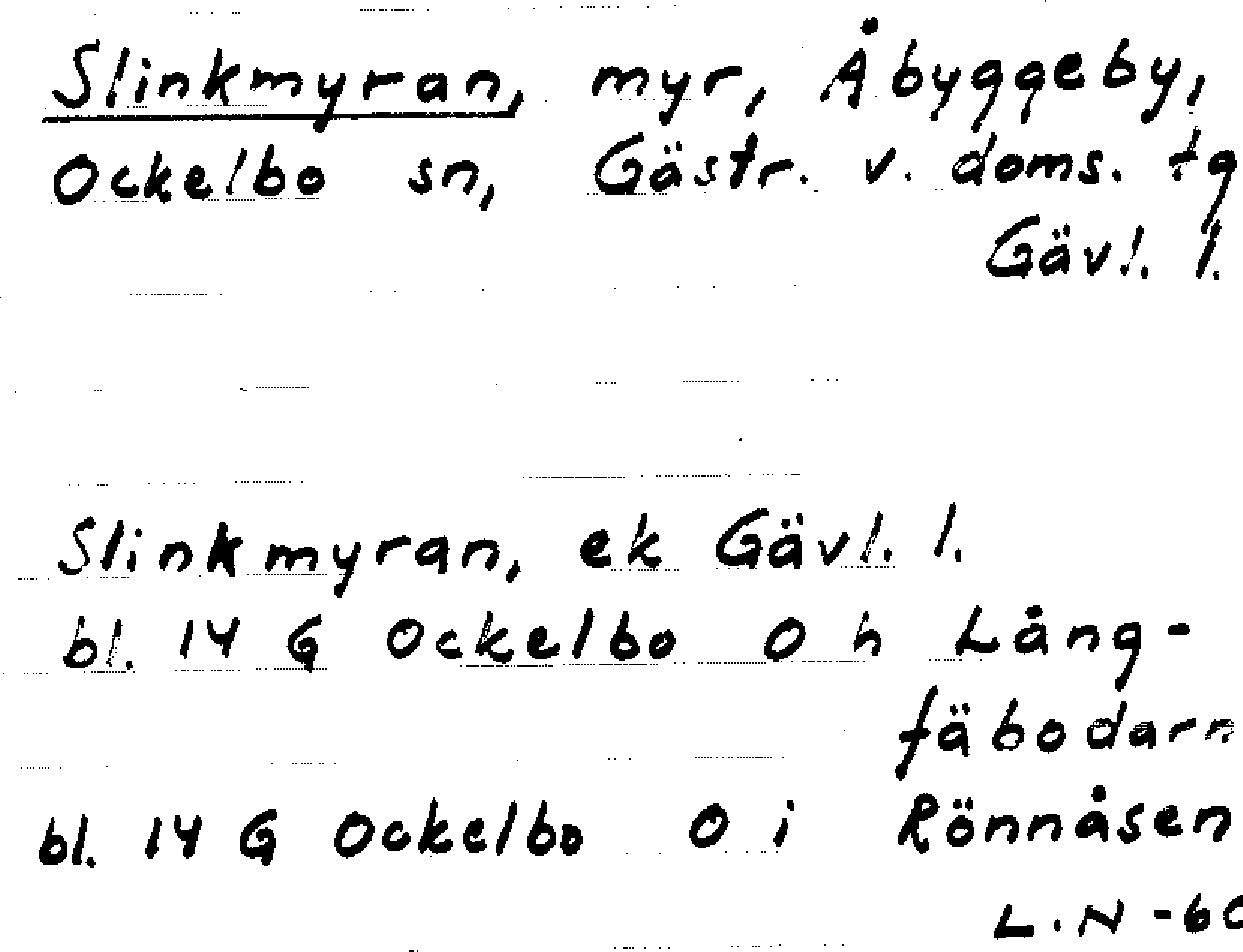 Slinkmyran, myr, Åbyggeby,
Ockelbo sn, Gästr. v. doms. tg
Gävl. l.
Slinkmyran, ek Gävl. l.
bl. 14 G Ockelbo O h Lång-
fäbodarn
bl. 14 G Ockelbo O i Rönnåsen
L.N -60